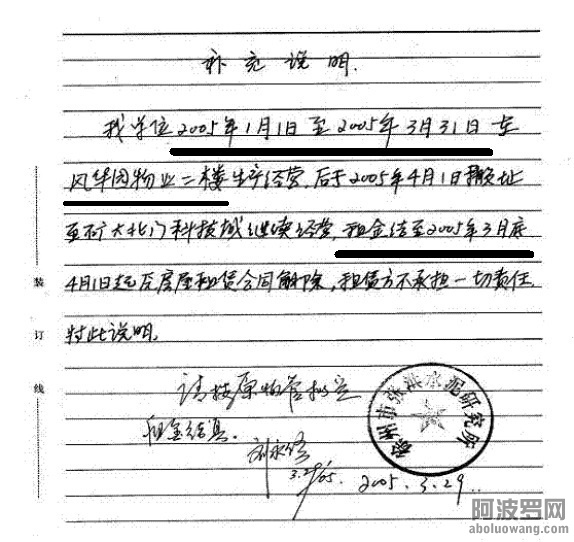 补充说明.
我单位2005年1月1日至2005年3月31日在
风华园物业二楼生产经营.后于2005年4月1日搬址
至矿大北门科技城继续经营,租金结至2005年3月底
4月1日起 房屋租赁合同解除,租赁方不承担一切责任.
特此说明.
请按原 管
租金结算.
刘永修
3.29/05.
2005.3.29.
徐州市张洪水泥研究所
装
订
线
阿波罗网
www.aboluowang.com